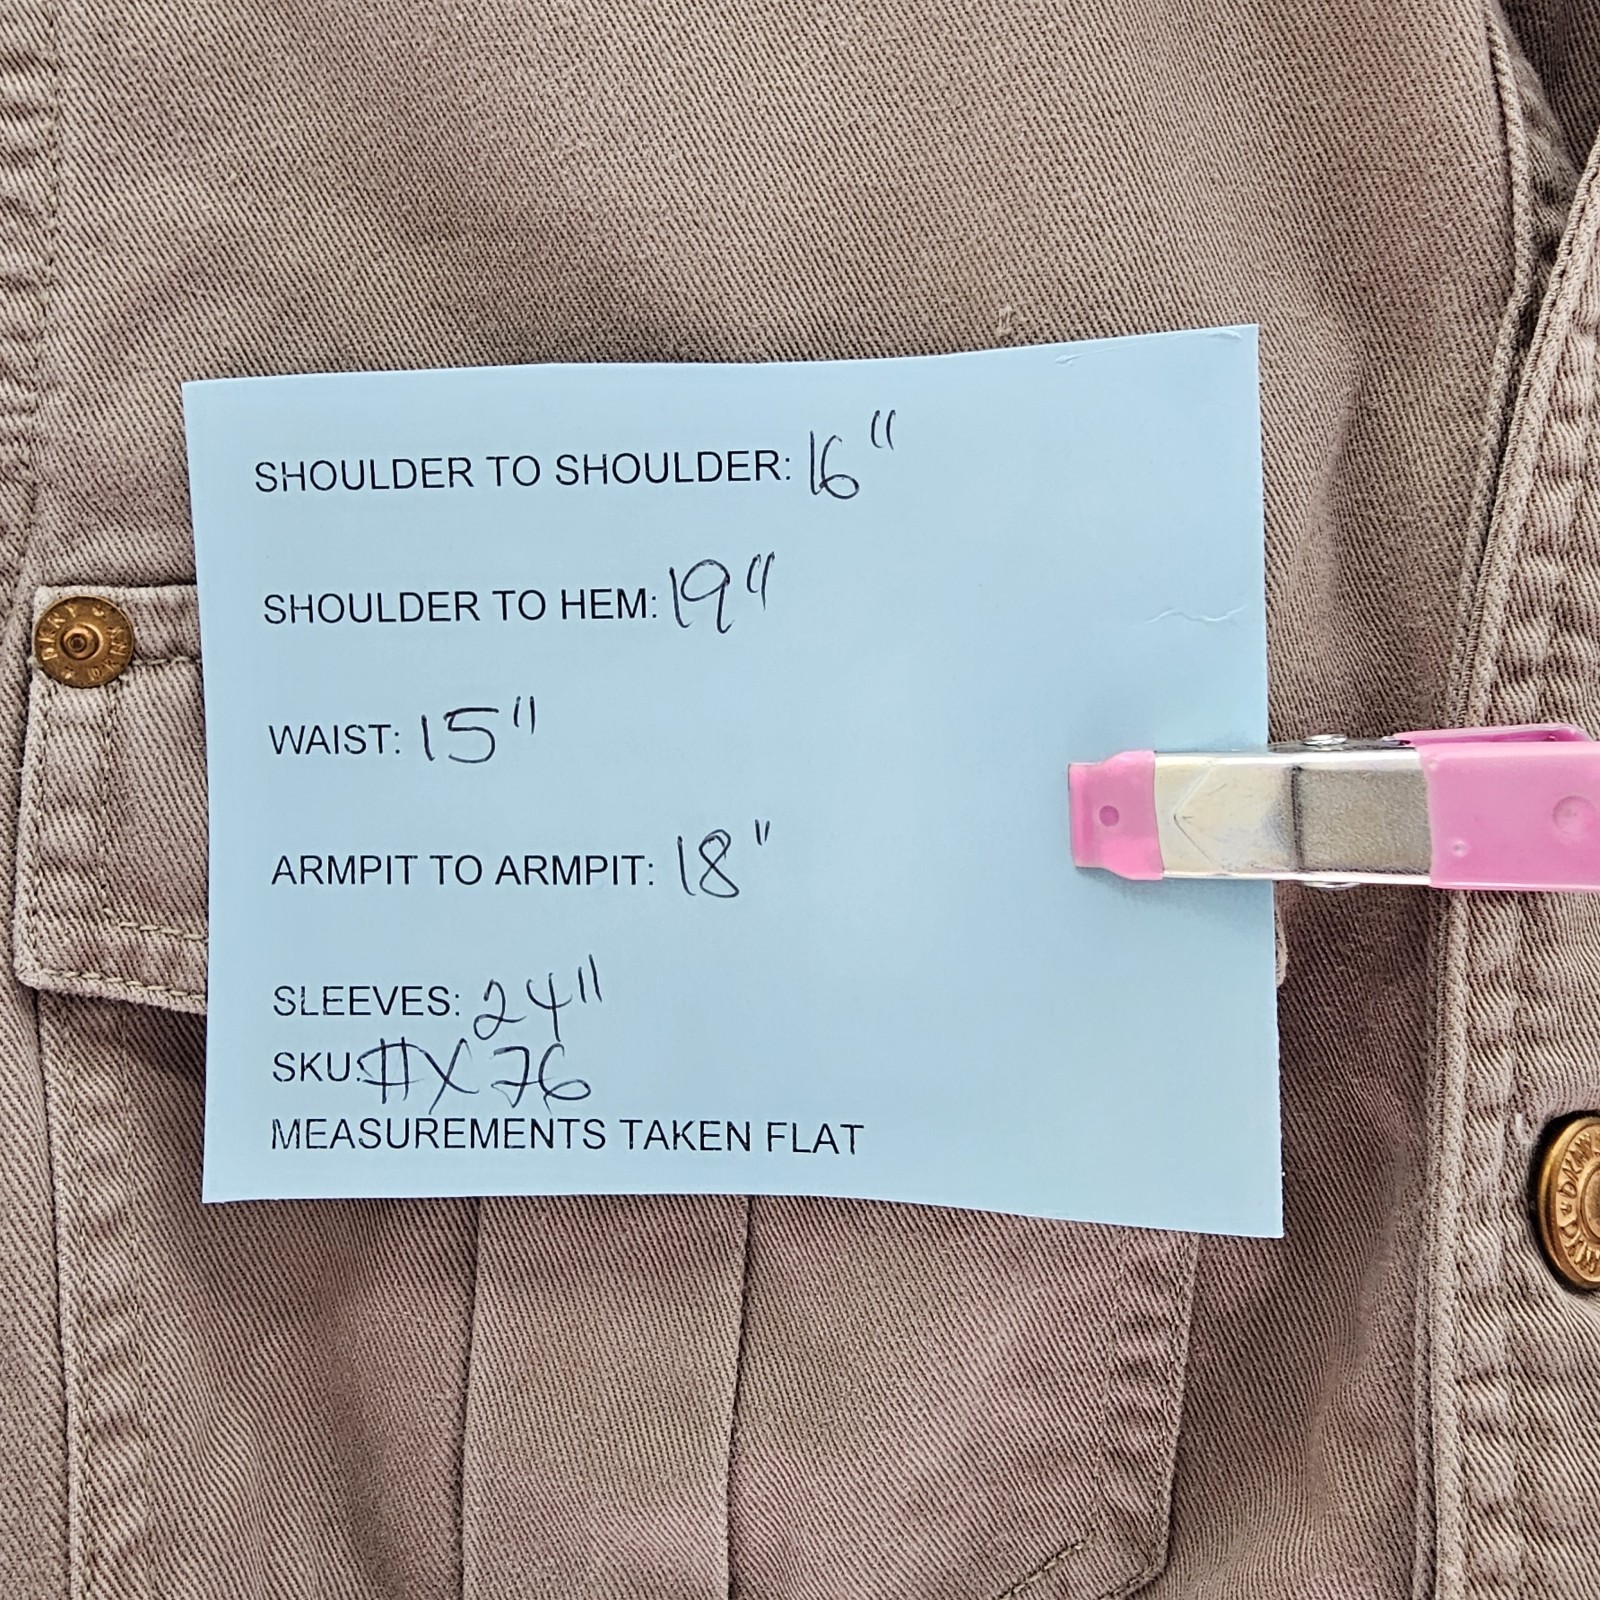 SHOULDER TO SHOULDER: 16"
SHOULDER TO HEM: 19"
WAIST: 15"
ARMPIT TO ARMPIT: 18"
SLEEVES: 24"
SKU: #X76
MEASUREMENTS TAKEN FLAT
DKNY DKNY
DKNY